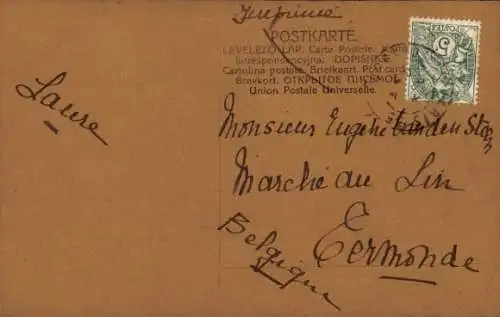 Imprimé
POSTKARTE
LEVELEZO-LAP. Carte Postale. 
Korespondencyjna. DOPISNICE.
Cartolina postale. Briefkaart. Post card.
Brevkort. ОТКРЫТОЕ ПИСЬМО.
Union Postale Universelle.
5
Laure
Monsieur Eugène
Marché au Lin
Termonde
Belgique